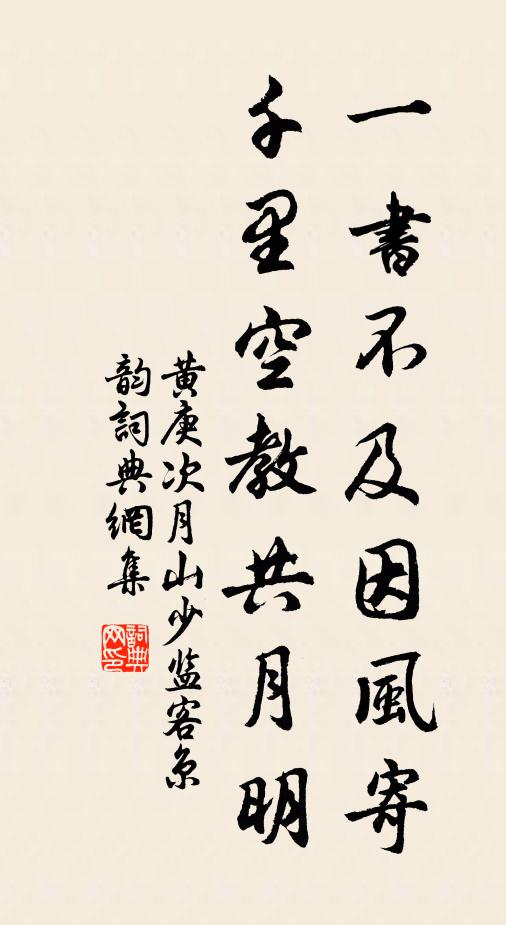 一書不及因風寄
千里空教共月明
黄庚次月山少监客京
韵詞典網集
詞典
网印